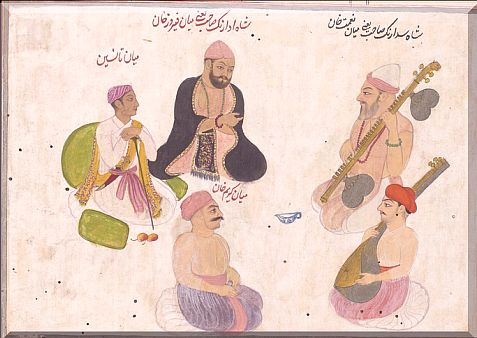 شاه سدارنگ صاحب یعنی میان نعمت خان
شاه ادارنگ صاحب یعنی میان فیروز خان
میان تانسین
میان کریم خان